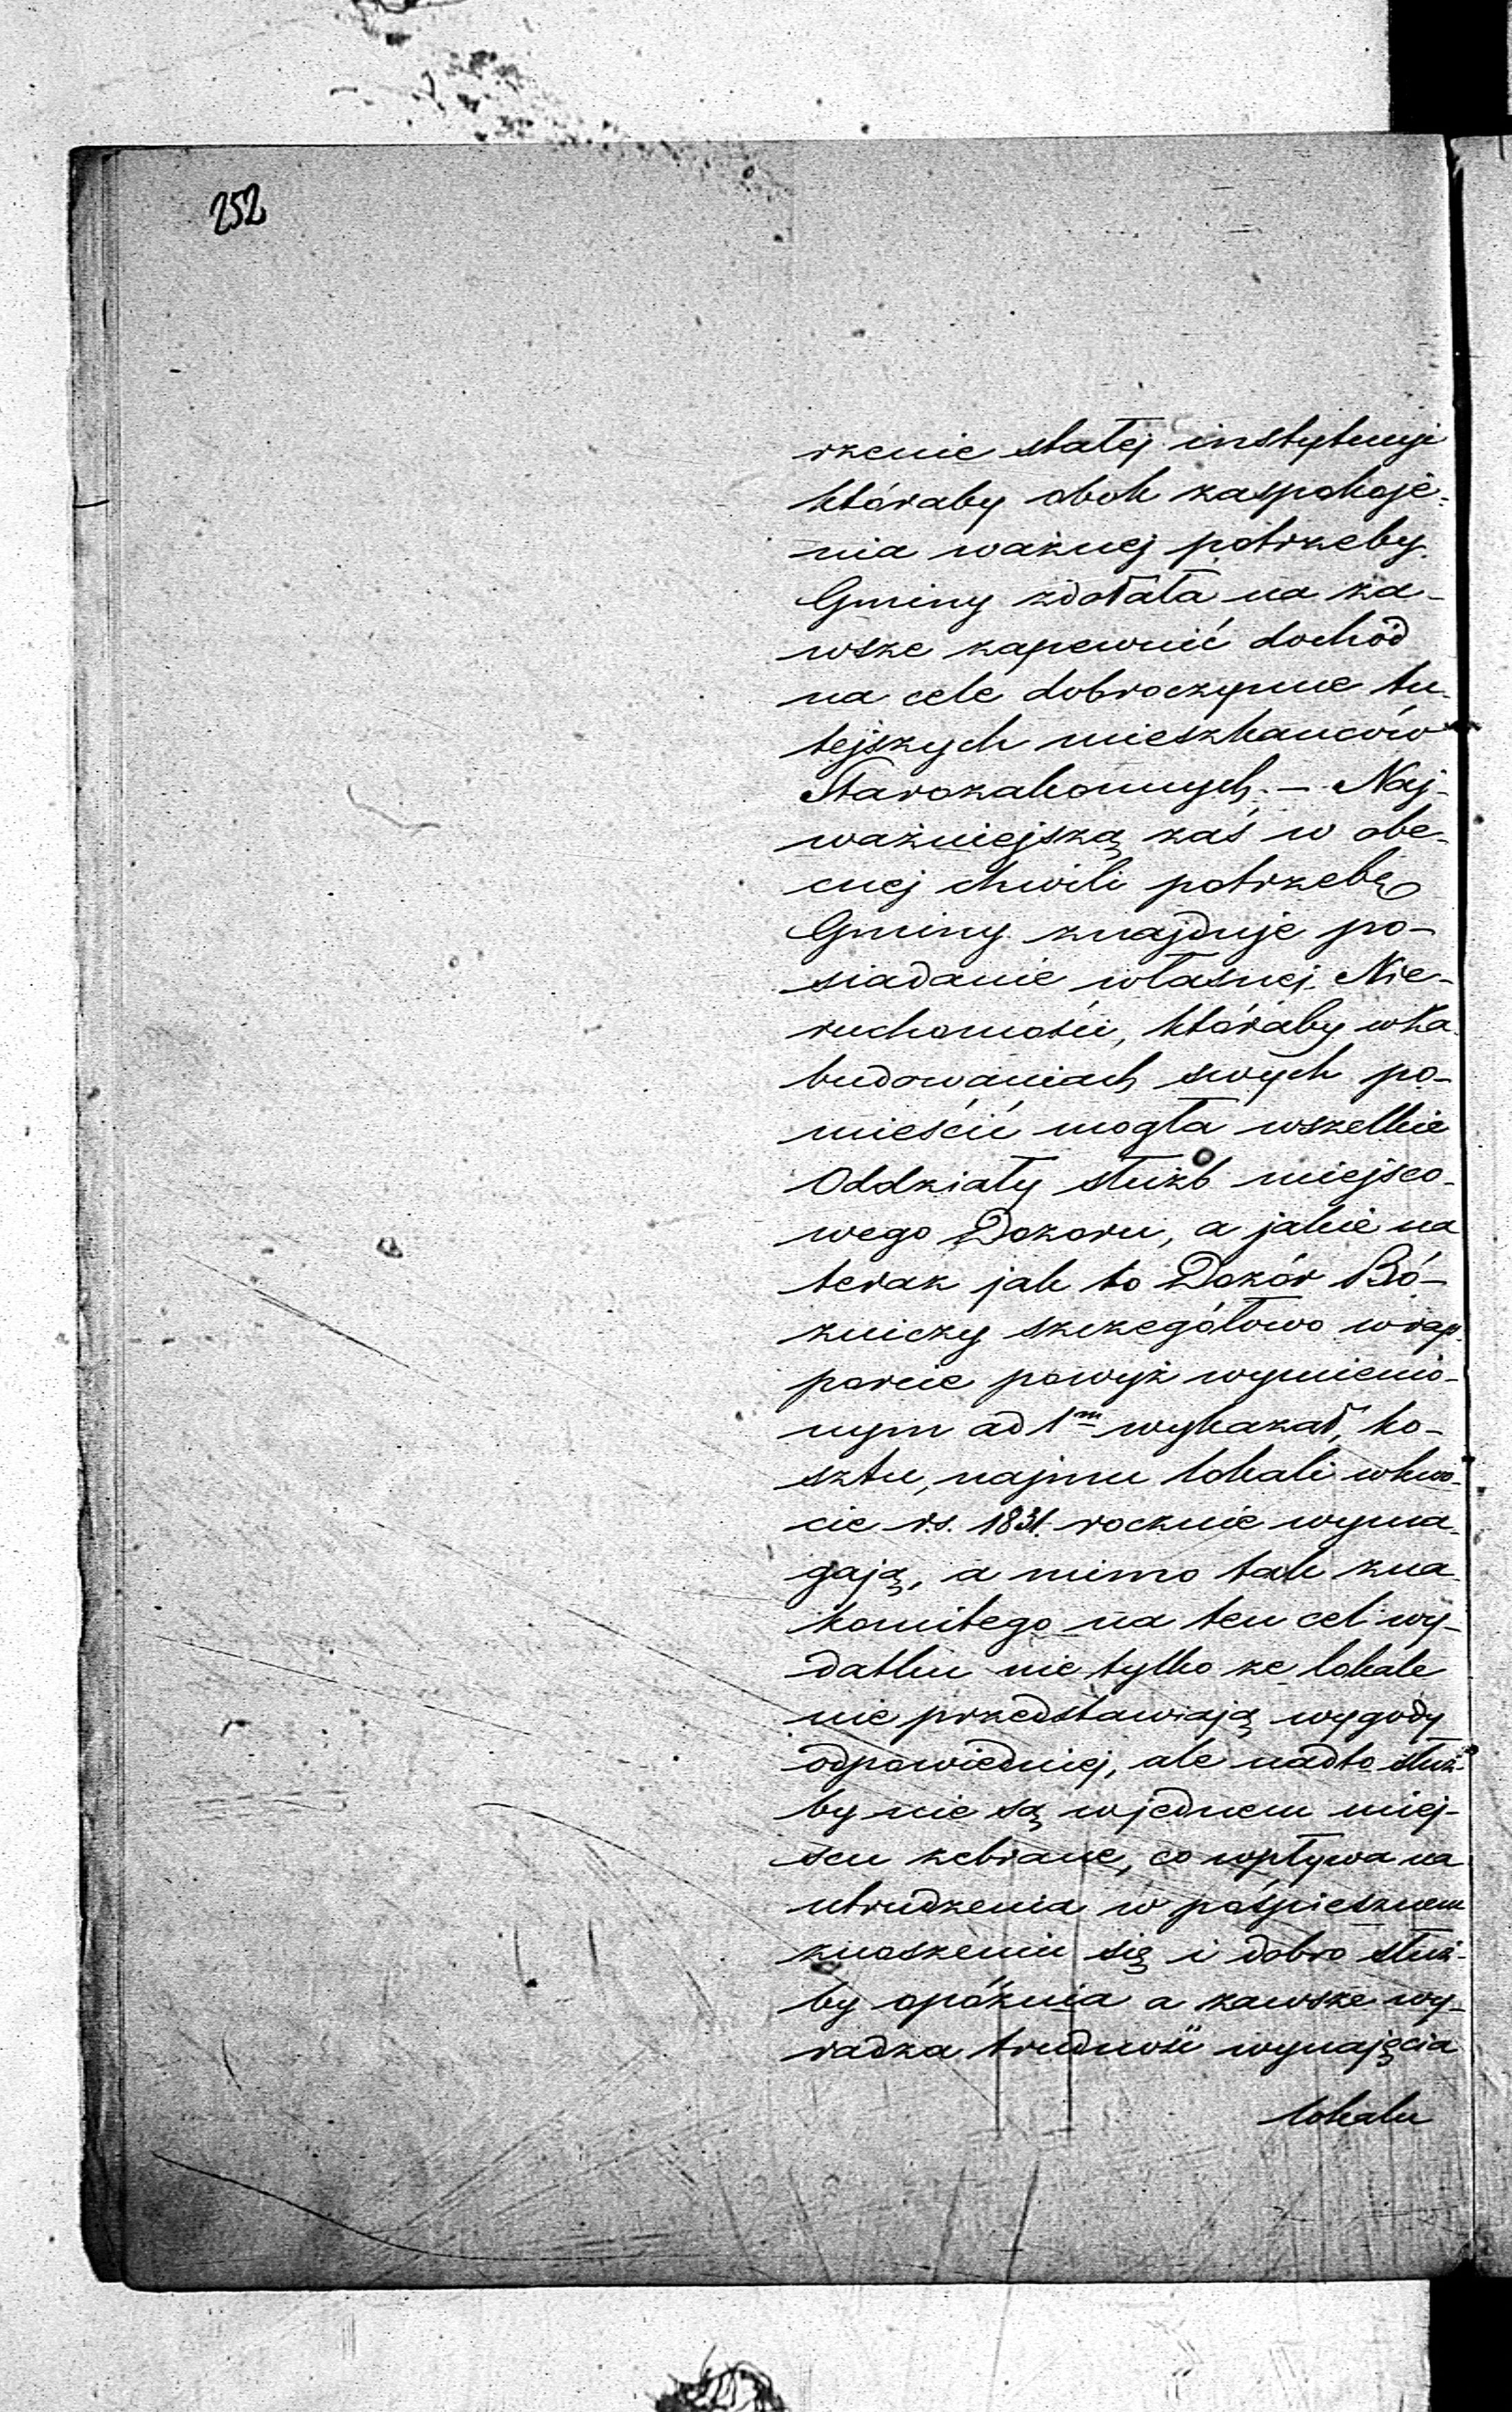 252
rzenie stałej instytucyi
któraby obok zaspokoje-
nia ważnej potrzeby
Gminy zdołała na za-
wsze zapewnić dochód
na cele dobroczynne tu-
tejszych mieszkańców
Starozakonnych. – Naj-
ważniejszą zaś w obe-
cnej chwili potrzebę
Gminy znajduje po-
siadanie własnej Nie-
ruchomości, któraby w za-
budowaniach swych po-
mieścić mogła wszelkie
Oddziały służb miejsco-
wego Dozoru, a jakie na
teraz jak to Dozór Bó-
żniczy szczegółowo w rap-
porcie powyż wymienio-
nym ad 1m wykazał, ko-
sztu, najmu lokali w kwo-
cie r.s. 1831. rocznie wyma-
gają, a mimo tak zna-
komitego na ten cel wy-
datku nie tylko że lokale
nie przedstawiają wygody
odpowiedniej, ale nadto służ-
by nie są w jednem miej-
scu zebrane, co wpływa na
utrudzenia w pośpiesznem
znoszeniu się i dobro służ-
by opóźnia a zawsze wy-
radza trudność wynajęcia
lokalu